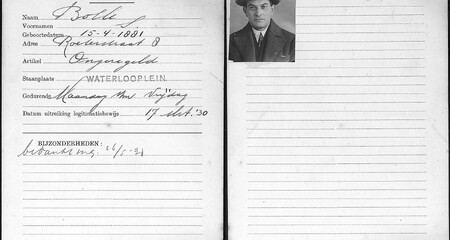 Naam Bolle
Voornamen S.
Geboortedatum 15-4-1881
Adres Roeterstraat 8
Artikel Ongeregeld
Staanplaats WATERLOOPLEIN.
Gedurende Maandag t/m Vrijdag
Datum uitreiking legitimatiebewijs 17 Oct. '30
BIJZONDERHEDEN:
bedankt m.i.